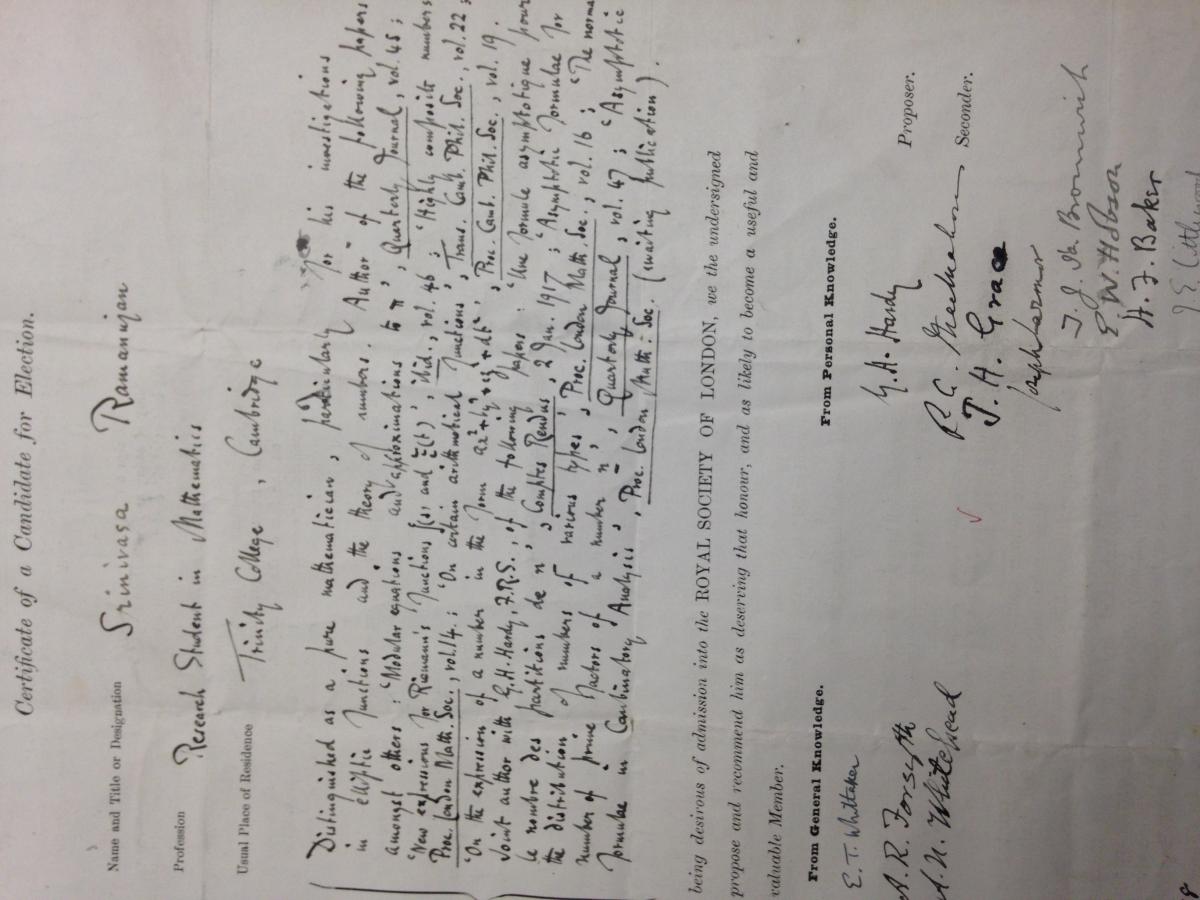 Certificate of a Candidate for Election.
Name and Title or Designation Srinivasa Ramanujan
Profession Research Student in Mathematics
Usual Place of Residence Trinity College, Cambridge
Distinguished as a pure mathematician, particularly for his investigations
in elliptic functions and the theory of numbers. Author of the following papers
amongst others: 'Modular equations and approximations to π', Quarterly Journal, vol. 45;
'New expressions for Riemann's functions ξ(s) and Ξ(t)', ibid, vol. 46; 'Highly composite numbers
Proc. London Math. Soc., vol. 14; 'On certain arithmetical functions', Trans. Camb. Phil. Soc., vol. 22;
'On the expression of a number in the form ax²+by²+cz²+dt²', Proc. Camb. Phil. Soc., vol. 19.
Joint author with G. H. Hardy, F.R.S., of the following papers: 'Une formule asymptotique pour
le nombre des partitions de n', Comptes Rendus, 2 Jan. 1917; 'Asymptotic formulae for
the distribution of numbers of various types', Proc. London Math. Soc., vol. 16; 'The normal
number of prime factors of a number n', Quarterly Journal, vol. 47; 'Asymptotic
formulae in Combinatory Analysis', Proc. London Math: Soc. (awaiting publication).
being desirous of admission into the ROYAL SOCIETY OF LONDON, we the undersigned
propose and recommend him as deserving that honour, and as likely to become a useful and
valuable Member.
From General Knowledge. From Personal Knowledge.
E. T. Whittaker G. H. Hardy Proposer.
A. R. Forsyth P. A. MacMahon Seconder.
A. N. Whitehead J. H. Grace
Joseph Larmor
T. J. I'A. Bromwich
E. W. Hobson
H. F. Baker
J. E. Littlewood